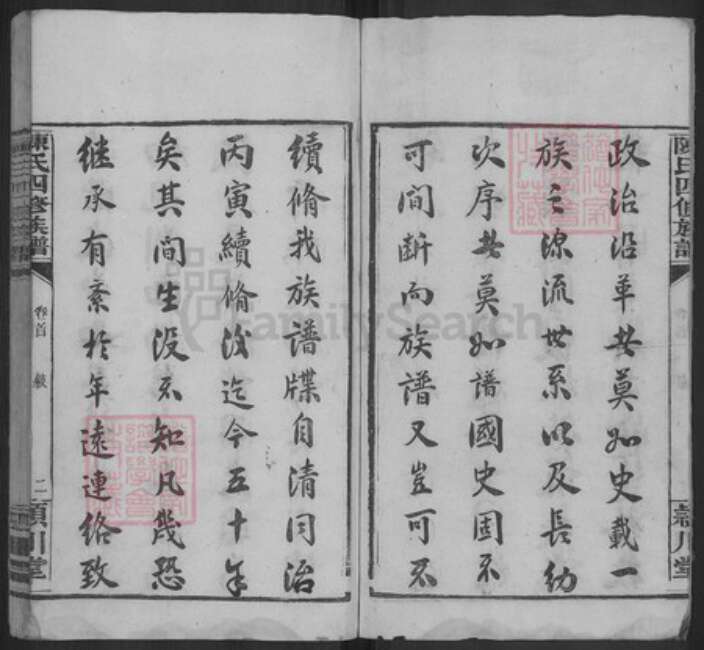 陳氏四修族譜
穎川堂
政治沿革其莫如史載一
族之源流世系以及長幼
次序其莫如譜國史固不
可間断而族譜又豈可不
續脩我族譜牒自清同治
丙寅續脩後迄今五十年
矣其間生没不知凡幾恐
继承有紊於年遠連络致
陳氏四修族譜
卷首
敍
二
穎川堂
FamilySearch